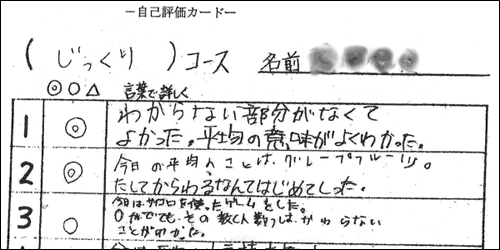 ー自己評価カードー
(じっくり)コース 名前
◎○△ 言葉で詳しく
1 ◎ わからない部分がなくて
よかった。平均の意味がよくわかった。
2 ◎ 今日の平均のことは、グレープフルーツ。
たしてからわるなんてはじめてしった。
3 ○ 今日はサイコロを使ったゲームをした。
0がでても、その数(人数)は、かわらない
ことがわかった。